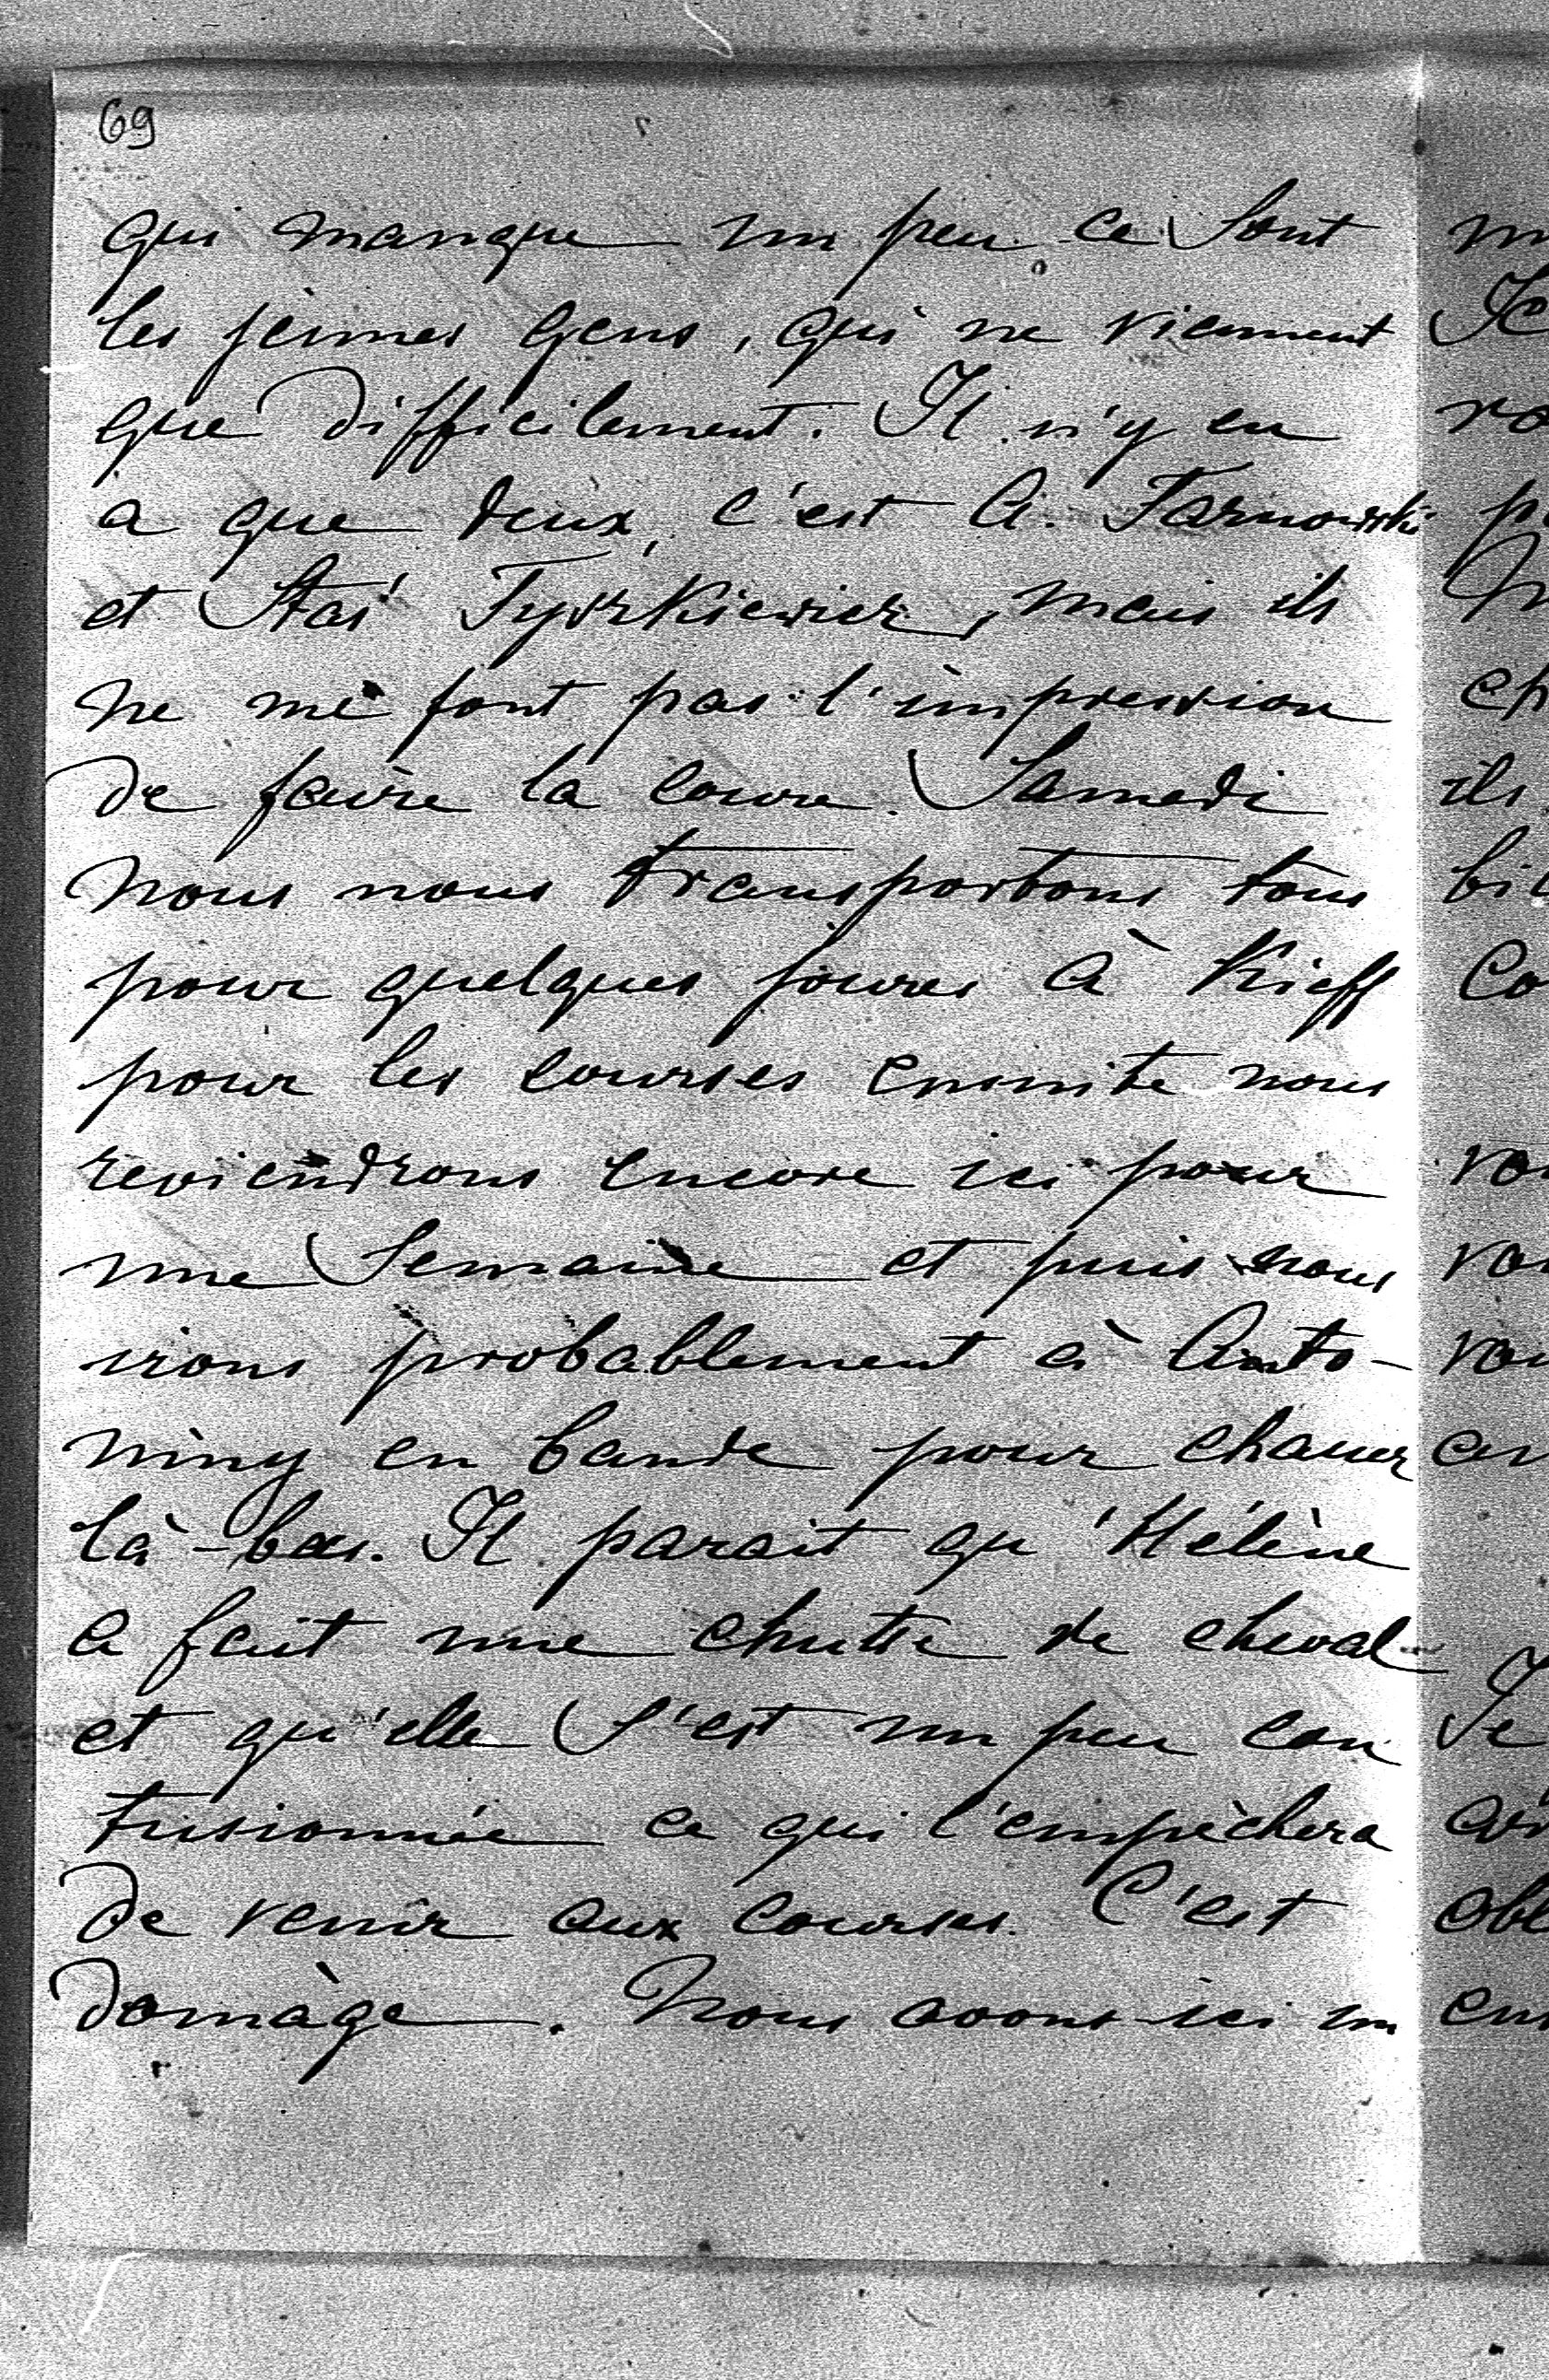 69
qui manque un peu ce sont
les jeunes gens, qui ne viennent
que difficilement. Il n'y en
a que deux, c'est A. Tarnowski
et Staś Tyszkiewicz, mais ils
ne me font pas l'impression
de faire la coure. Samedi
nous nous transportons tous
pour quelques joures à Kieff
pour les courses ensuite nous
reviendrons encore ici pour
une Semaine et puis nous
irons probablement à Anto-
niny en bande pour chasser
là-bas. Il parait qu'Hélène
a fait une chutte de cheval
et qu'elle s'est un peu con
tusionnée ce qui l'empèchera
de venir aux courses. C'est
domàge. Nous avons ici un